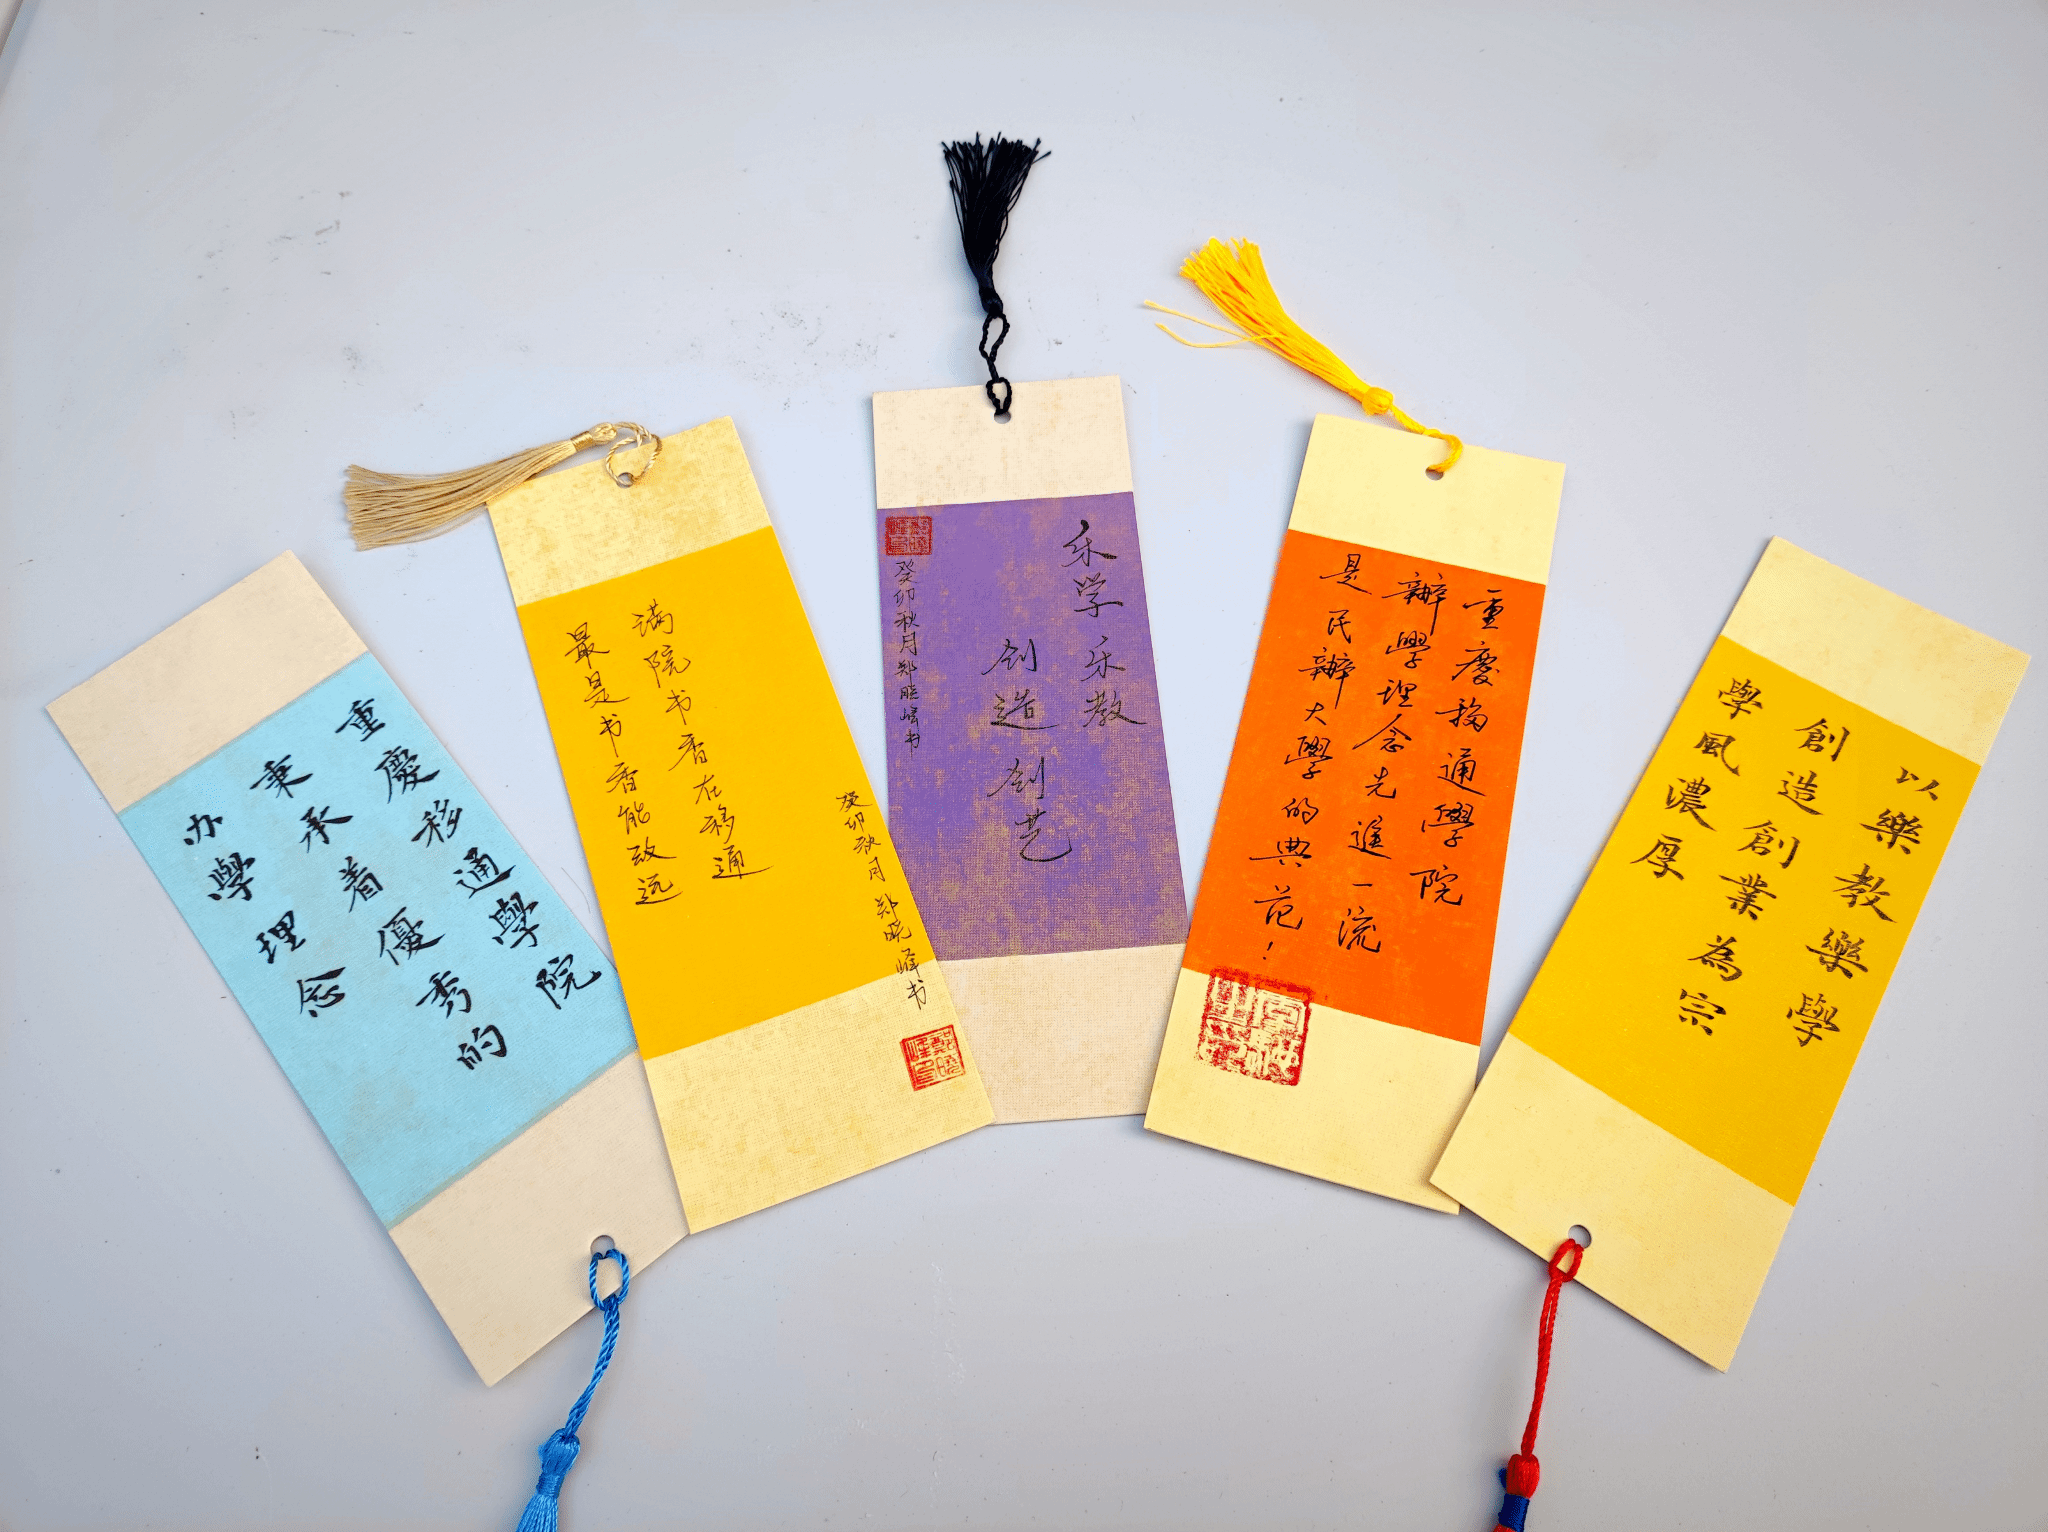 重慶移通學院
秉承着優秀的
办學理念
满院书香在移通
最是书香能致远
癸卯秋月 郑晓峰书
乐学乐教
创造创艺
癸卯秋月郑晓峰书
重慶移通學院
辦學理念先進一流
是民辦大學的典范！
以樂教樂學
創造創業為宗
學風濃厚